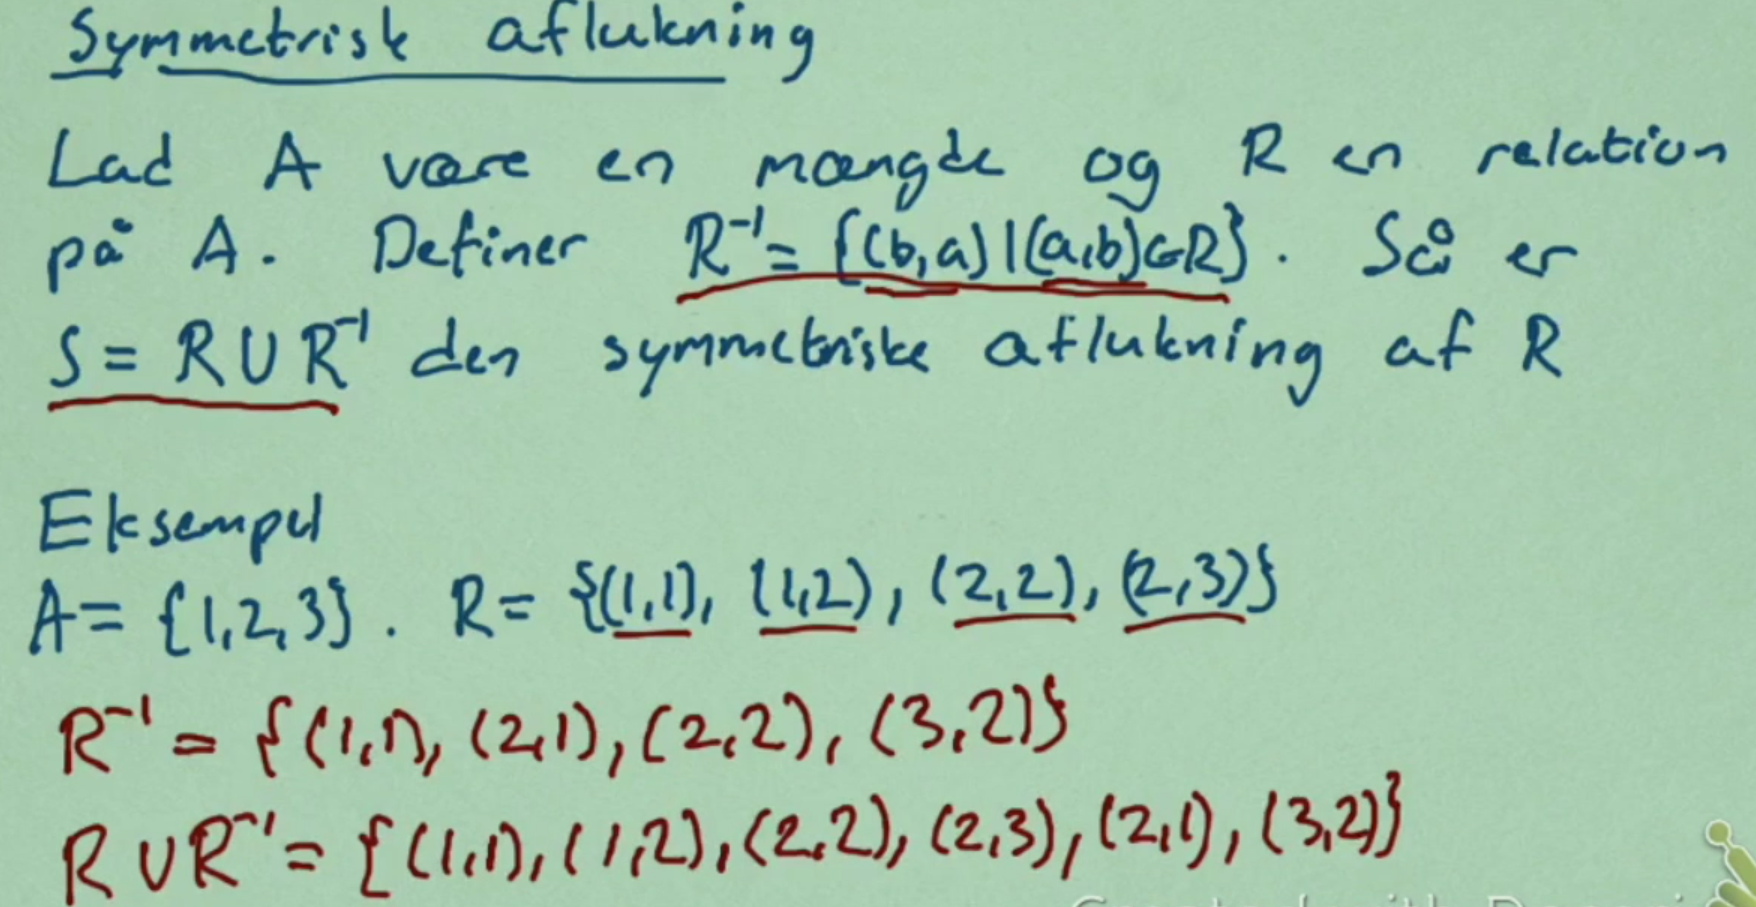 Symmetrisk aflukning
Lad A være en mængde og R en relation
på A. Definer R⁻¹ = {(b,a) | (a,b) ∈ R}. Så er
S = R ∪ R⁻¹ den symmetriske aflukning af R
Eksempel
A = {1,2,3}. R = {(1,1), (1,2), (2,2), (2,3)}
R⁻¹ = {(1,1), (2,1), (2,2), (3,2)}
R ∪ R⁻¹ = {(1,1), (1,2), (2,2), (2,3), (2,1), (3,2)}